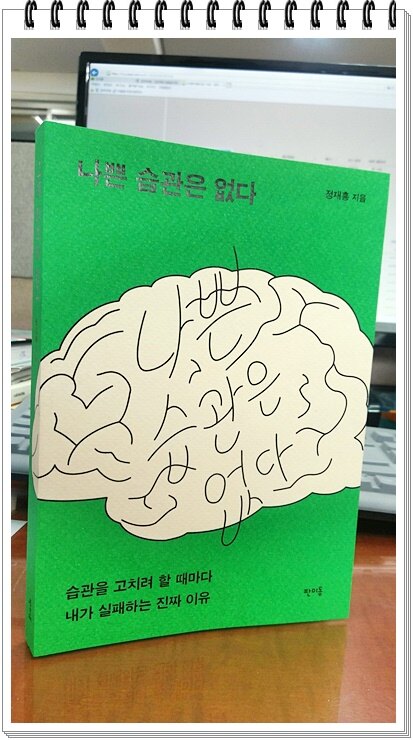 나쁜 습관은 없다
정재홍 지음
나쁜
습관은
없다
습관을 고치려 할 때마다
내가 실패하는 진짜 이유
판미동